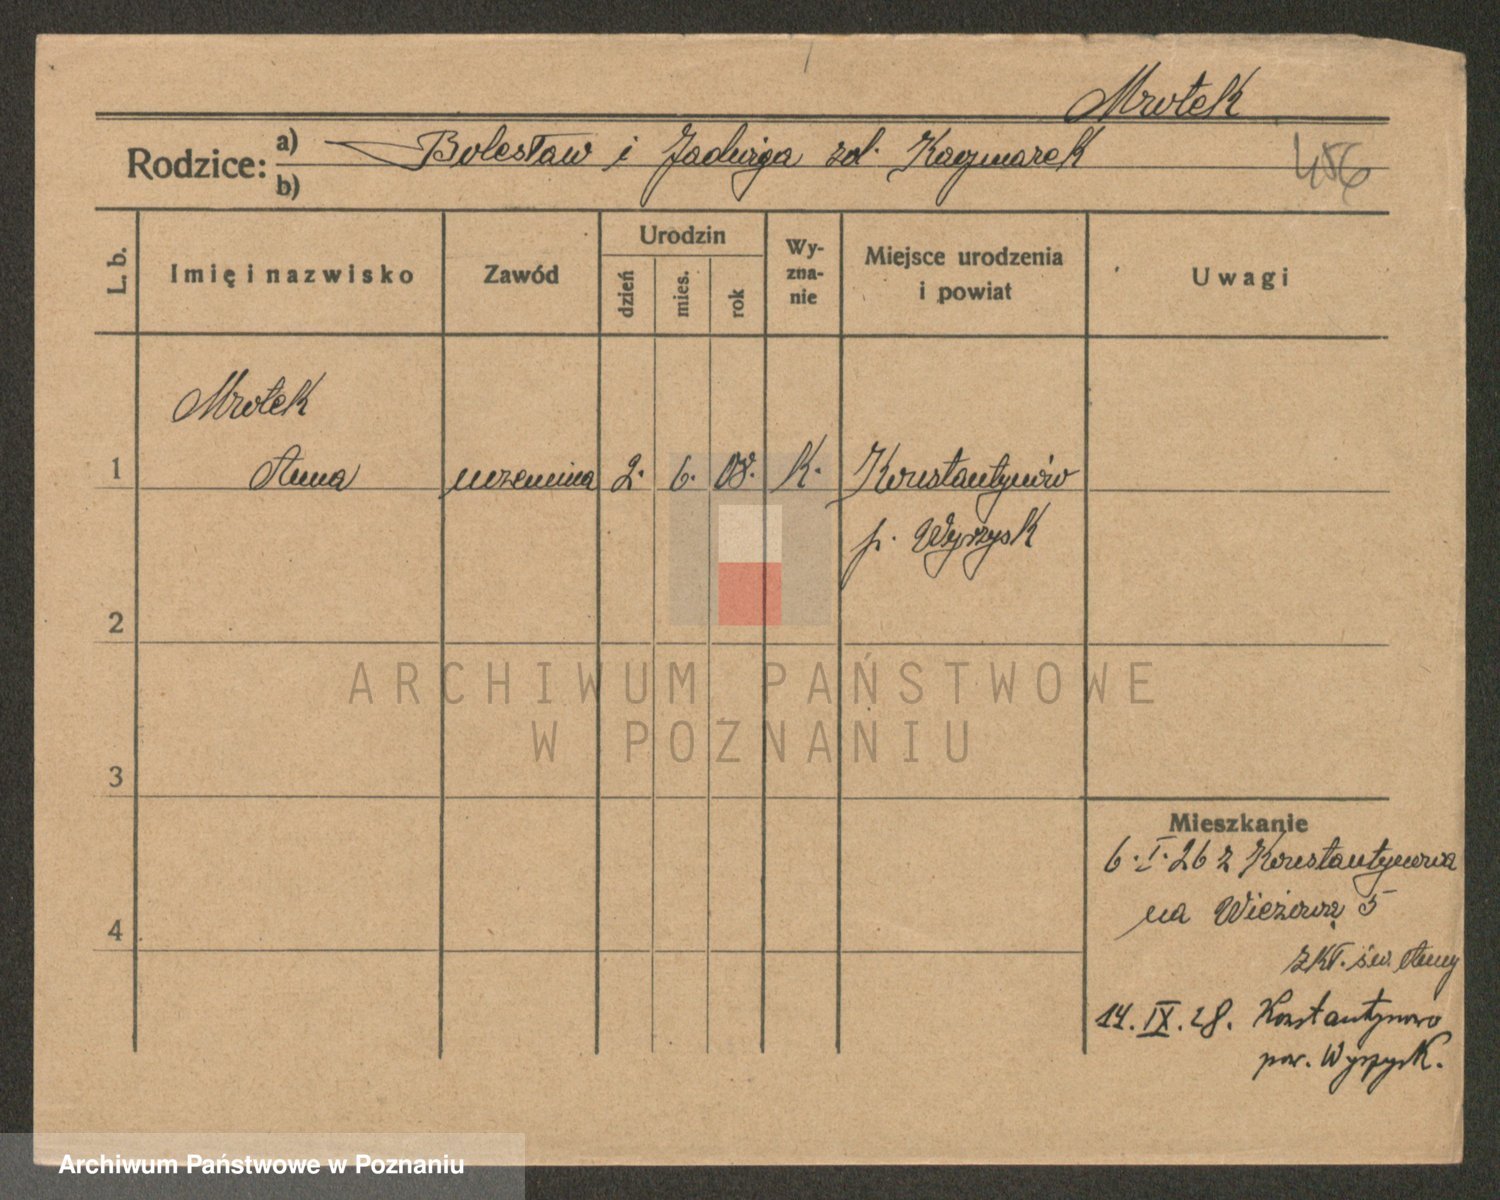 Mrotek
Rodzice: a) Bolesław i Jadwiga zd. Kaczmarek
b)
456
L. b.
Imię i nazwisko
Zawód
Urodzin
dzień
mies.
rok
Wy-
zna-
nie
Miejsce urodzenia
i powiat
Uwagi
Mrotek
1 Anna uczennica 2. 6. 08. K. Konstantynów
p. Wyrzysk
2
ARCHIWUM PAŃSTWOWE
W POZNANIU
3
Mieszkanie
6.I.26 z Konstantynowa
na Wieżową 5
zkł. św. Anny
4
14.IX.28. Konstantynowo
pow. Wyrzysk.
Archiwum Państwowe w Poznaniu